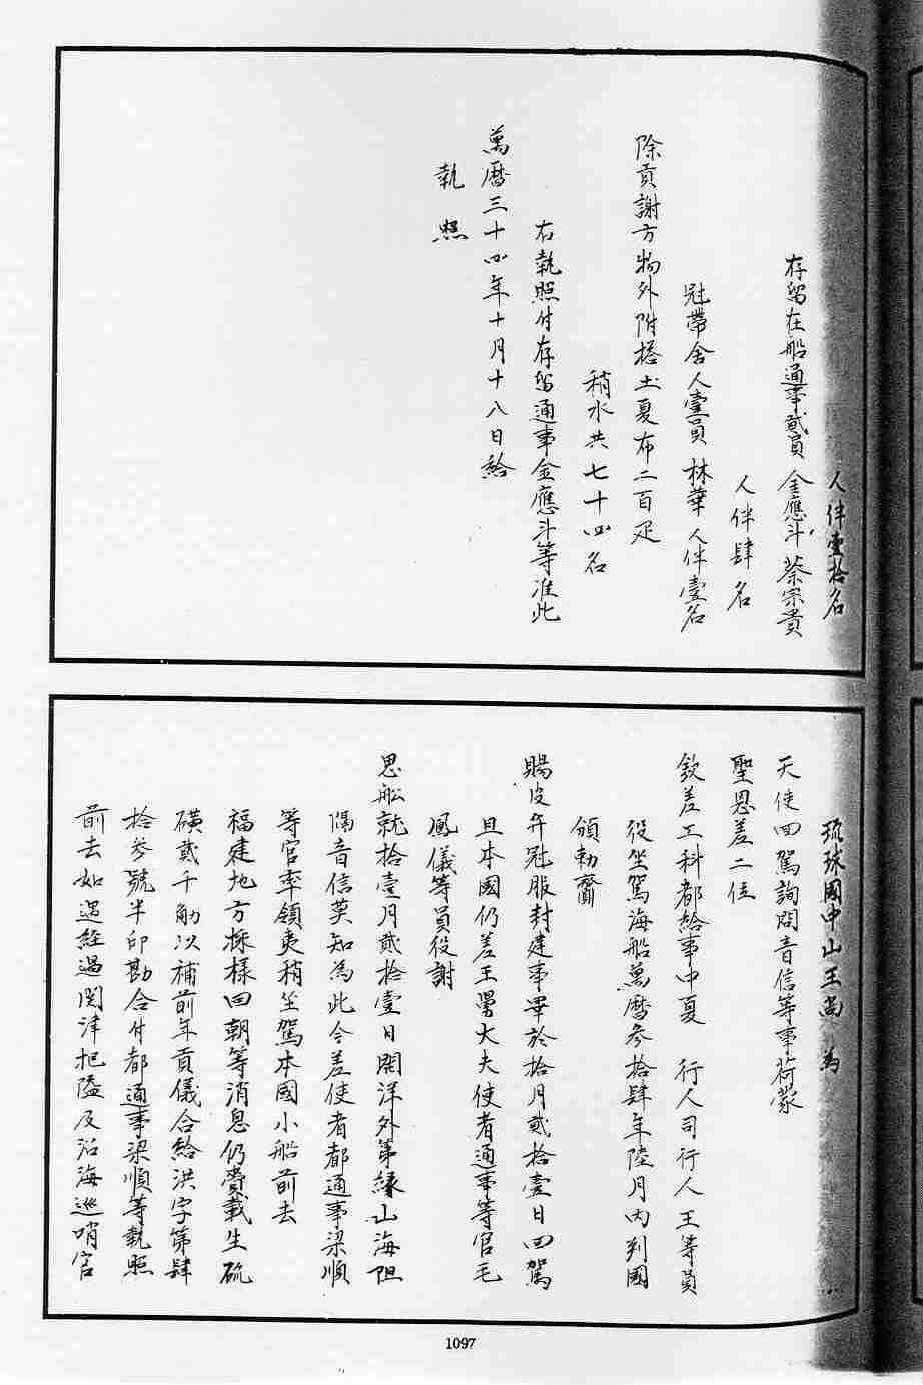 人伴壹拾名
存留在船通事貳員 金應斗 蔡宗貴
人伴肆名
冠帶舍人壹員 林華 人伴壹名
除貢謝方物外附搭土夏布二百疋
稍水共七十四名
右執照付存留通事金應斗等准此
萬曆三十四年十月十八日給
執照
琉球國中山王尚 為
天使回駕詢問音信等事荷蒙
聖恩差二位
欽差工科都給事中夏 行人司行人王等員
役坐駕海船萬曆參拾肆年陸月內到國
頒勅齎
賜皮弁冠服封建事畢於拾月貳拾壹日回駕
且本國仍差王舅大夫使者通事等官毛
鳳儀等員役謝
恩舩就拾壹月貳拾壹日開洋外第緣山海阻
隔音信莫知為此今差使者都通事梁順
等官率領夷稍坐駕本國小船前去
福建地方採樣回朝等消息仍賫載生硫
磺貳千觔以補前年貢儀合給洪字第肆
拾參號半印勘合付都通事梁順等執照
前去如遇經過関津把隘及沿海巡哨官
1097